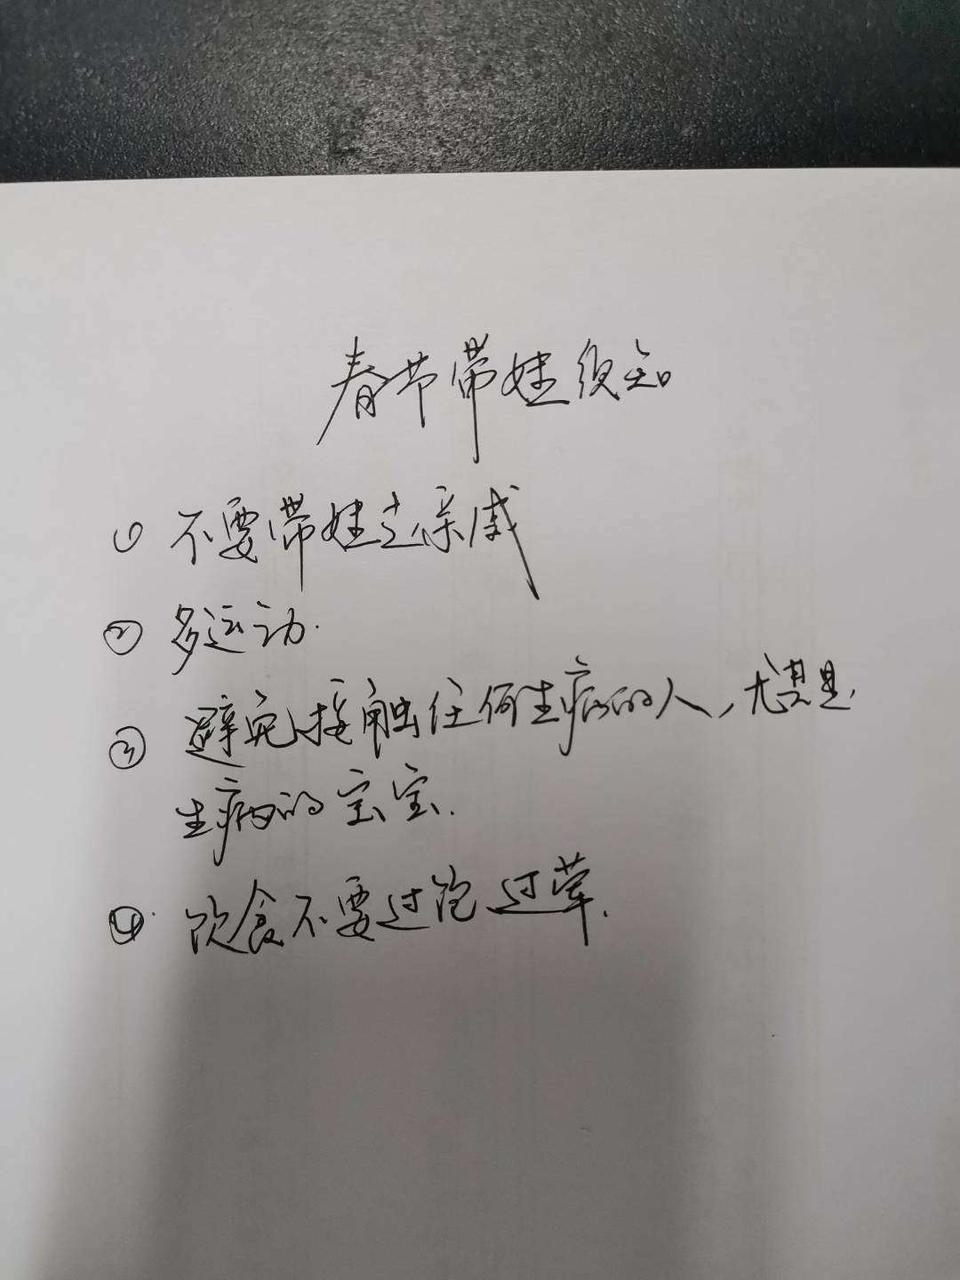 春节带娃须知
① 不要带娃走亲戚
② 多运动.
③ 避免接触任何生病的人,尤其是
生病的宝宝.
④. 饮食不要过饱过荤.